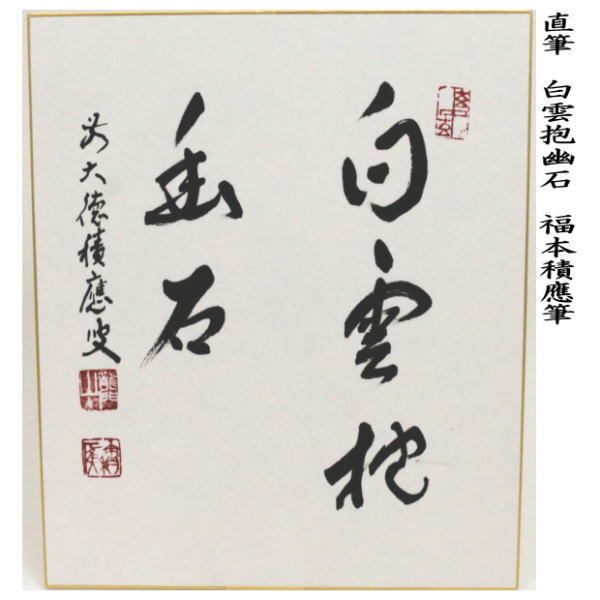 直筆 白雲抱幽石 福本積應筆
白雲抱
幽石
前大徳積應叟